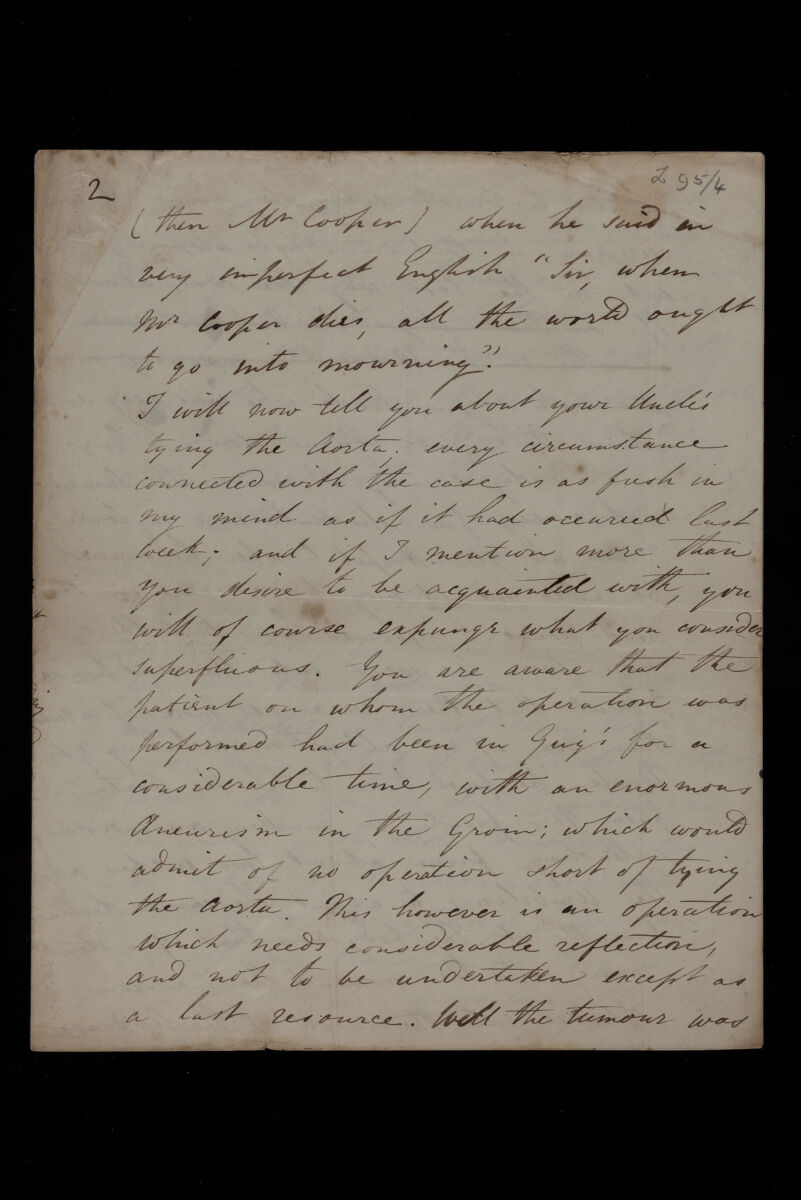 2
295/4
(then Mr Cooper) when he said in
very imperfect English "Sir, when
Mr Cooper dies, all the world ought
to go into mourning".
I will now tell you about your Uncle's
tying the Aorta; every circumstance
connected with the case is as fresh in
my mind as if it had occurred last
week; and if I mention more than
you desire to be acquainted with, you
will of course expunge what you consider
superfluous. You are aware that the
patient on whom the operation was
performed had been in Guy's for a
considerable time, with an enormous
Aneurism in the Groin; which would
admit of no operation short of tying
the Aorta. This however is an operation
which needs considerable reflection,
and not to be undertaken except as
a last resource. Well the tumour was